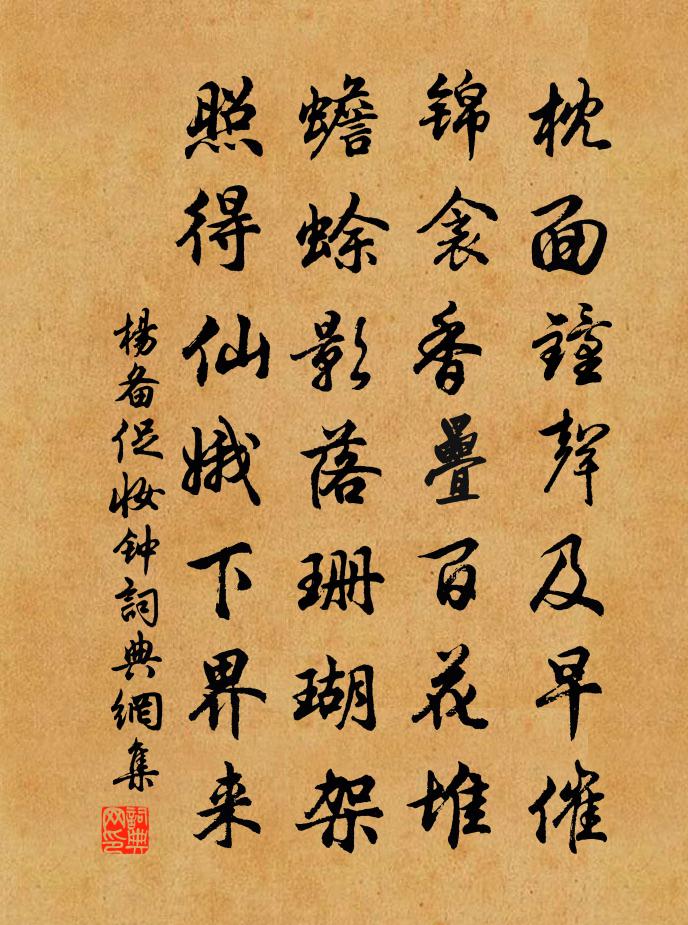 枕面鐘聲及早催
锦衾香疊百花堆
蟾蜍影落珊瑚架
照得仙娥下界来
楊备促妆钟詞典網集
詞典网印